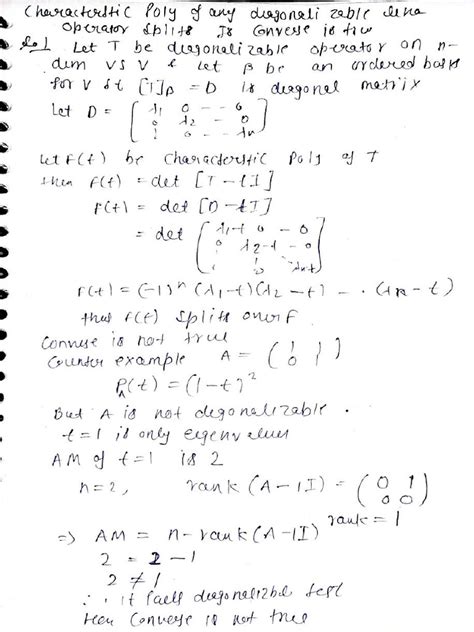 Characterstic Poly of any diagonali zable linea
Operator Splits Is Converse is true
Sol Let T be diagonalizable operator on n-
dim VS V & let β be an ordered basis
for V st [T]β = D is diagonal matrix
Let D = ( λ1 0 - - 0
0 λ2 - - 0
0 ! - - λn )
Let f(t) be characterstic Poly of T
then f(t) = det [T - tI]
f(t) = det [D - tI]
= det [ λ1-t 0 - 0
λ2-t - 0
λn-t ]
f(t) = (-1)^n (λ1-t)(λ2-t) - - (λn-t)
thus f(t) splits over F
Converse is not true
Counter example A = ( 1 1
0 1 )
PA(t) = (1-t)²
But A is not degonalizable .
t=1 is only eigenvalues
AM of t=1 is 2
n=2, rank (A-1I) = ( 0 1
0 0 )
rank = 1
=> AM = n-rank(A-1I)
2 = 2 - 1
2 ≠ 1
∴ it fails diagonalizbl test
Hen Converse is not true